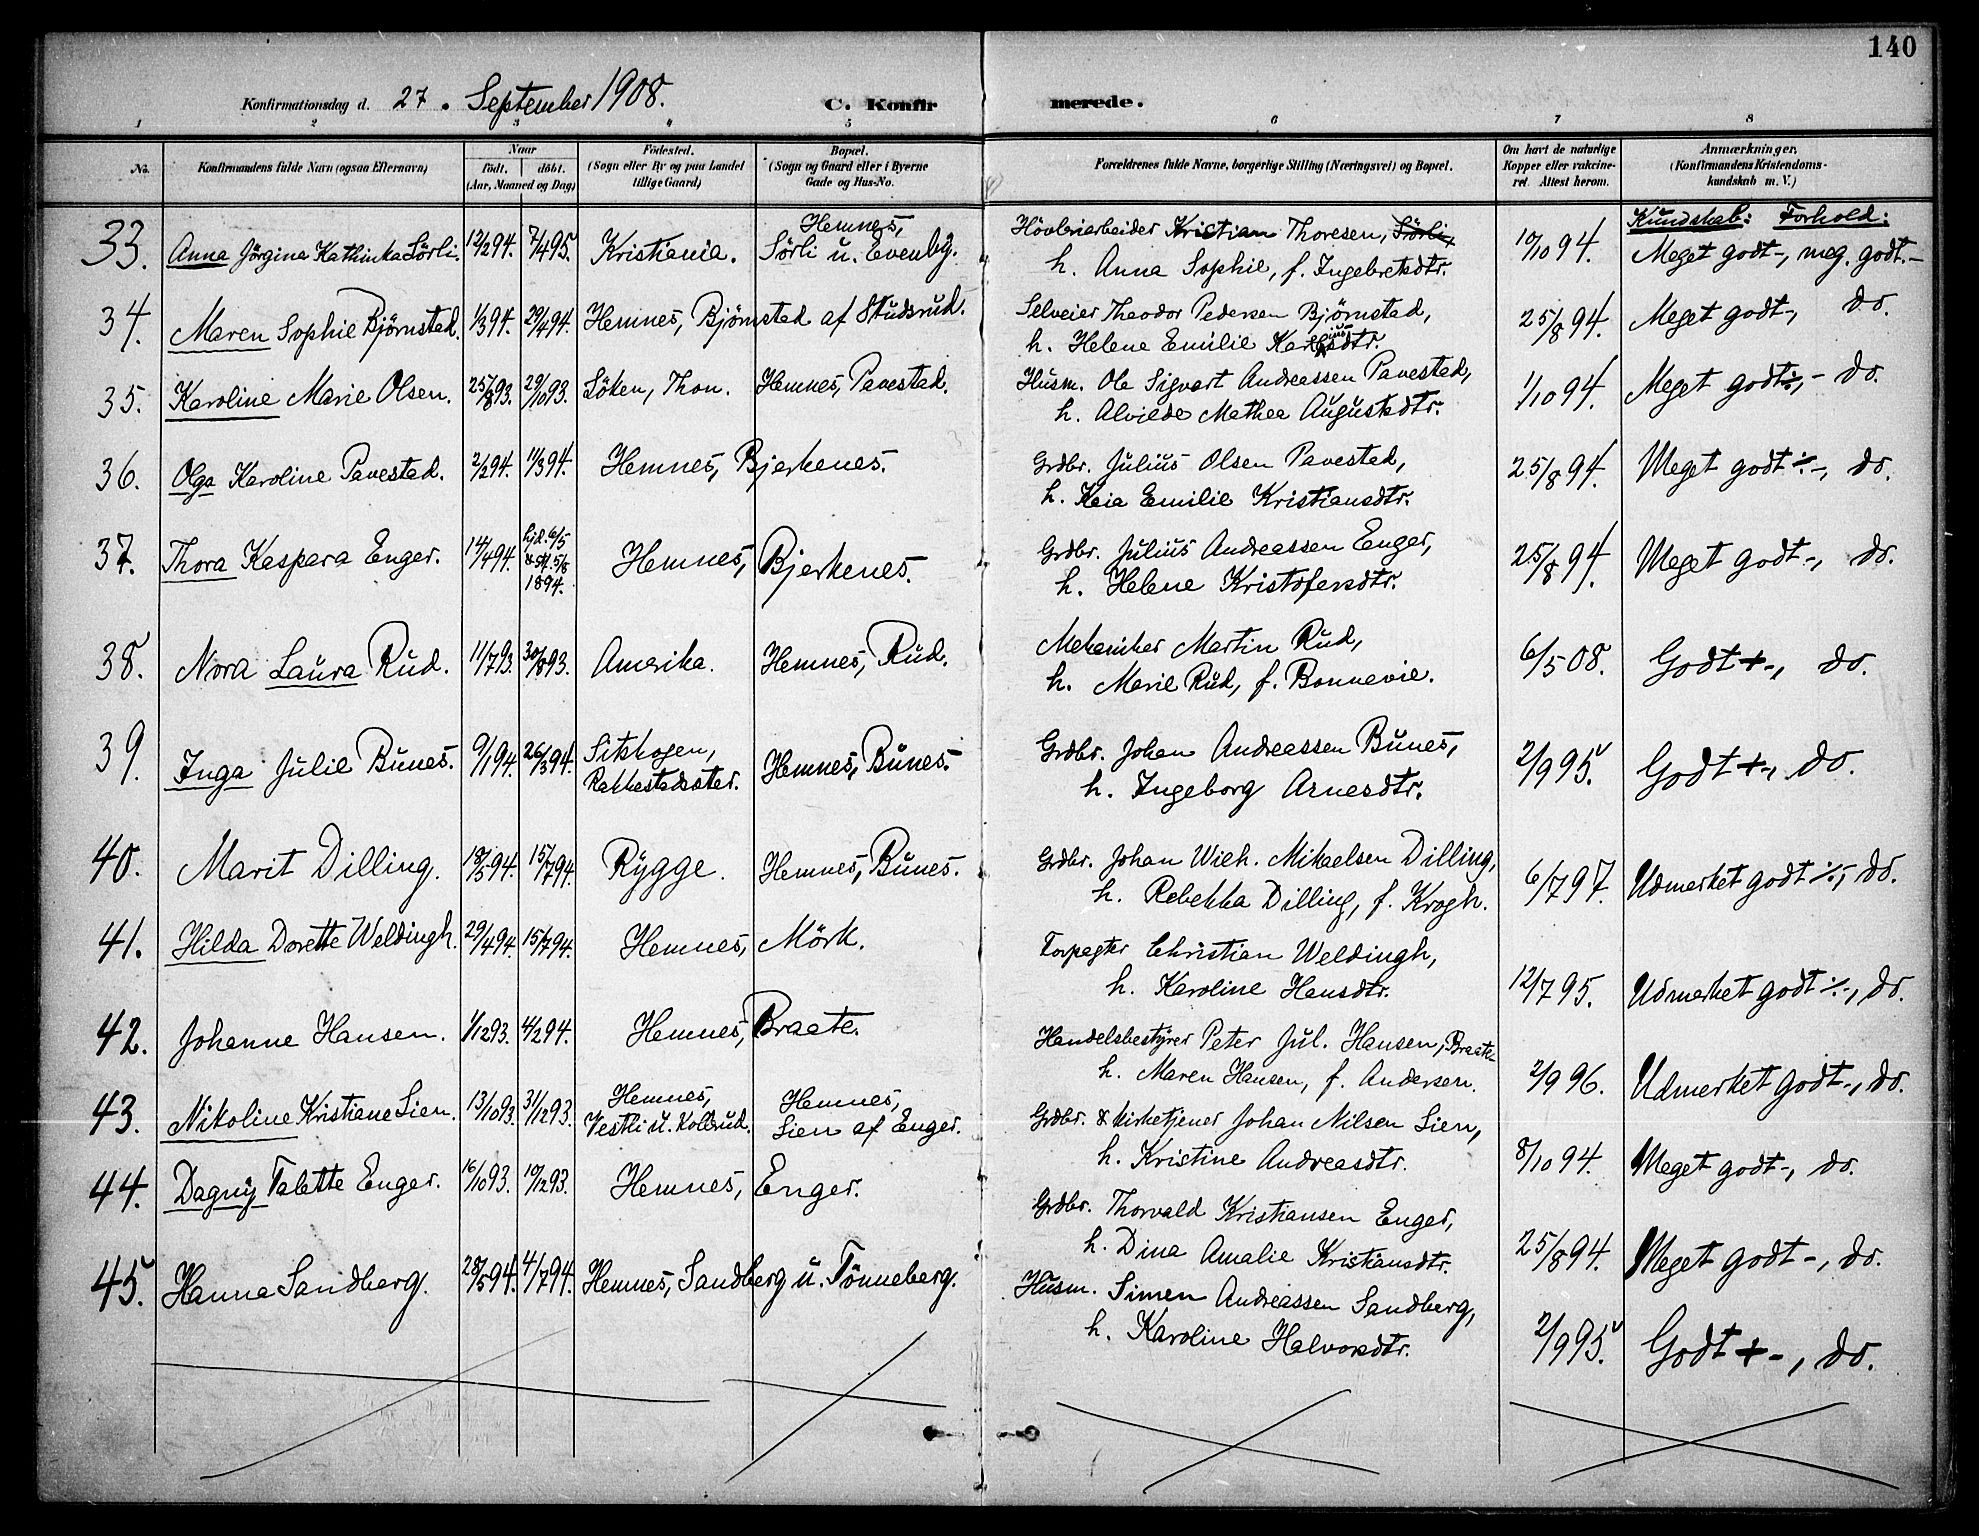 140
Konfirmationsdag d. 27. September 1908. C. Konfirmerede.
1 2 3 4 5 6 7 8
No. Konfirmandens fulde Navn (ogsaa Efternavn) Naar født. døbt. (Aar, Maaned og Dag) Fødested. (Sogn eller By og paa Landet tillige Gaard) Bopæl. (Sogn og Gaard eller i Byerne Gade og Hus-No. Forældrenes fulde Navne, borgerlige Stilling (Næringsvei) og Bopæl. Om havt de naturlige Kopper eller vakcineret. Attest herom. Anmærkninger. (Konfirmandens Kristendomskundskab m. V.)
Kundskab: Forhold:
33. Anna Jörgine Kathinka Sörli. 12/2 94. 7/4 95. Kristiania. Hemnes, Sörli u. Evenby. Hövleriarbeider Kristian Thoresen, Sörli, 10/10 94. Meget godt-, meg. godt.-
h. Anna Sophie, f. Ingebretsdtr.
34. Maren Sophie Björnstad. 1/3 94. 29/4 94. Hemnes, Björnstad af Studsrud. Selveier Theodor Pedersen Björnstad, 25/8 94. Meget godt-, do.
h. Helene Emilie Karliusdtr.
35. Karoline Marie Olsen. 25/8 93. 29/10 93. Söken, Thon. Hemnes, Pavestad. Husm. Ole Sigvart Andreassen Pavestad, 1/10 94. Meget godt÷,- do.
h. Alvilde Mathea Augustsdtr.
36. Olga Karoline Pavestad. 2/2 94. 11/3 94. Hemnes, Bjerkenes. Grdbr. Julius Olsen Pavestad, 25/8 94. Meget godt÷-, do.
h. Kaia Emilie Kristiansdtr.
37. Thora Kaspara Enger. 14/4 94. hjd. 6/5 & st. 5/8 1894. Hemnes, Bjerkenes. Grdbr. Julius Andreassen Enger, 25/8 94. Meget godt-, do.
h. Helene Kristofersdtr.
38. Nora Laura Rud. 11/7 93. 30/8 93. Amerika. Hemnes, Rud. Mekaniker Martin Rud, 6/5 08. Godt+-, do.
h. Marie Rud, f. Bonnevie.
39. Inga Julie Bunes. 9/1 94. 26/3 94. Sitskogen, Rakkestadseter. Hemnes, Bunes. Grdbr. Johan Andreassen Bunes, 2/9 95. Godt+-, do.
h. Ingeborg Arnesdtr.
40. Marit Dilling. 18/5 94. 15/7 94. Rygge. Hemnes, Bunes. Grdbr. Johan Wilh. Mikaelsen Dilling, 6/7 97. Udmerket godt÷-, do.
h. Rebekka Dilling, f. Krogh.
41. Hilda Dorette Weldingh. 29/4 94. 15/7 94. Hemnes, Mörk. Forpagter Christian Weldingh, 12/7 95. Udmerket godt÷-, do.
h. Karoline Hansdtr.
42. Johanne Hansen. 1/12 93. 4/2 94. Hemnes, Braate. Handelsbestyrer Peter Jul. Hansen, Braate 2/9 96. Udmerket godt-, do.
h. Maren Hansen, f. Andersen.
43. Nikoline Kristiane Lien. 13/10 93. 31/12 93. Hemnes, Vestli u. Kollerud. Hemnes, Lien af Enger. Grdbr. & kirketjener Johan Nilsen Lien, 8/10 94. Meget godt-, do.
h. Kristine Andreasdtr.
44. Dagny Talette Enger. 16/10 93. 10/12 93. Hemnes, Enger. Grdbr. Thorvald Kristiansen Enger, 25/8 94. Meget godt-, do.
h. Dina Amalie Kristiansdtr.
45. Hanna Sandberg. 28/5 94. 4/7 94. Hemnes, Sandberg u. Tönneberg. Husm. Simen Andreassen Sandberg, 2/9 95. Godt+-, do.
h. Karoline Halvorsdtr.